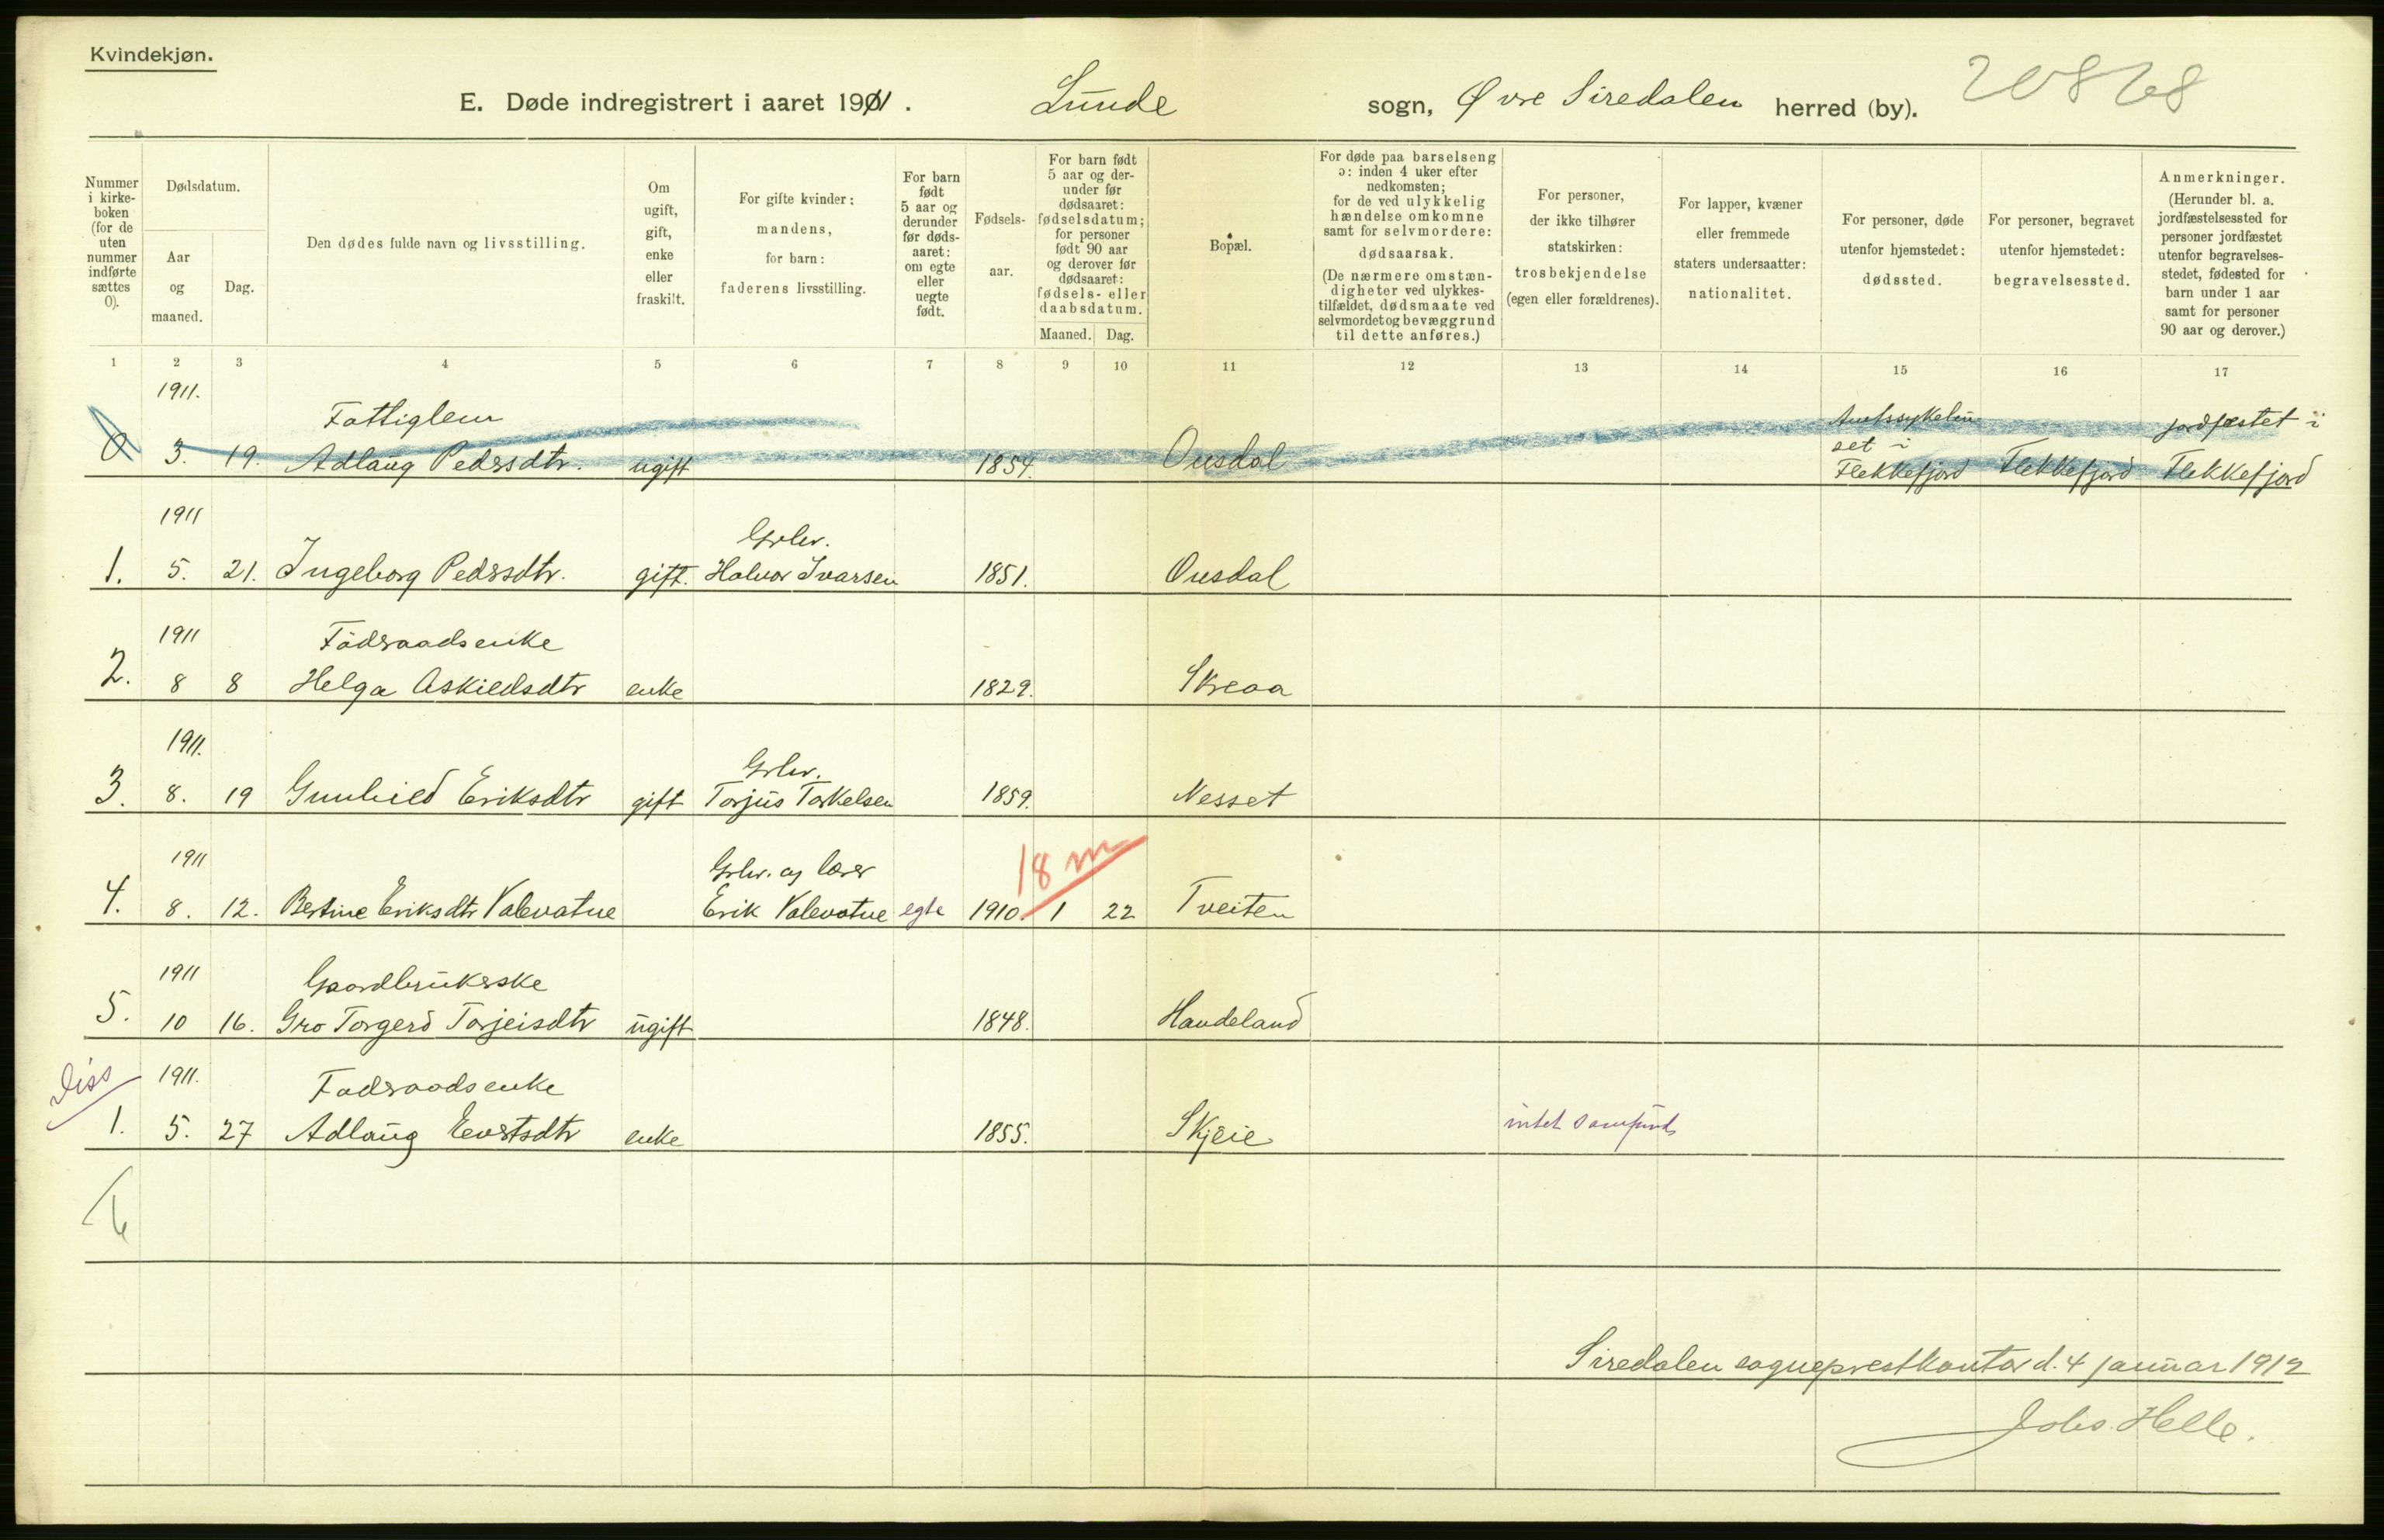 Kvindekjøn.
E. Døde indregistrert i aaret 1911. Lunde sogn, Øvre Siredalen herred (by). 20868
Nummer i kirkeboken (for de uten nummer indførte sættes 0).
Dødsdatum.
Aar og maaned.
Dag.
Den dødes fulde navn og livsstilling.
Om ugift, gift, enke eller fraskilt.
For gifte kvinder: mandens, for barn: faderens livsstilling.
For barn født 5 aar og derunder før dødsaaret: om egte eller uegte født.
Fødselsaar.
For barn født 5 aar og derunder før dødsaaret: fødselsdatum; for personer født 90 aar og derover før dødsaaret: fødsels- eller daabsdatum.
Maaned. Dag.
Bopæl.
For døde paa barselseng ɔ: inden 4 uker efter nedkomsten; for de ved ulykkelig hændelse omkomne samt for selvmordere: dødsaarsak. (De nærmere omstændigheter ved ulykkestilfældet, dødsmaate ved selvmordet og bevæggrund til dette anføres.)
For personer, der ikke tilhører statskirken: trosbekjendelse (egen eller forældrenes).
For lapper, kvæner eller fremmede staters undersaatter: nationalitet.
For personer, døde utenfor hjemstedet: dødssted.
For personer, begravet utenfor hjemstedet: begravelsessted.
Anmerkninger. (Herunder bl. a. jordfæstelsessted for personer jordfæstet utenfor begravelsesstedet, fødested for barn under 1 aar samt for personer 90 aar og derover.)
1 2 3 4 5 6 7 8 9 10 11 12 13 14 15 16 17
1911. Fattiglem Amtssykehu jordfæstet i
set i
0 3. 19. Adlaug Pedersdtr. ugift 1854. Ousdal Flekkefjord Flekkefjord Flekkefjord
1911 Grbr.
1. 5. 21. Ingeborg Pedersdtr. gift. Halvor Ivarsen 1851. Ousdal
1911 Föderaadsenke
2. 8 8 Helga Askieldsdtr enke 1829. Skreaa
1911. Grbr.
3. 8. 19 Gunhild Eriksdtr gift Torjus Torkelsen 1859. Nesset
1911 Grbr. og lærer 18 m
4. 8. 12. Bertine Eriksdtr Valevatne Erik Valevatne egte 1910. 1 22 Tveiten
1911 Gaardbrukerske
5. 10 16. Gro Torgerd Torjeisdtr ugift 1848. Haudeland
Diss 1911. Föderaadsenke
1. 5. 27 Adlaug Evertsdtr enke 1855. Skjeie intet samfund
6
Siredalen sogneprestkontor d. 4 januar 1912
Johs. Helle.